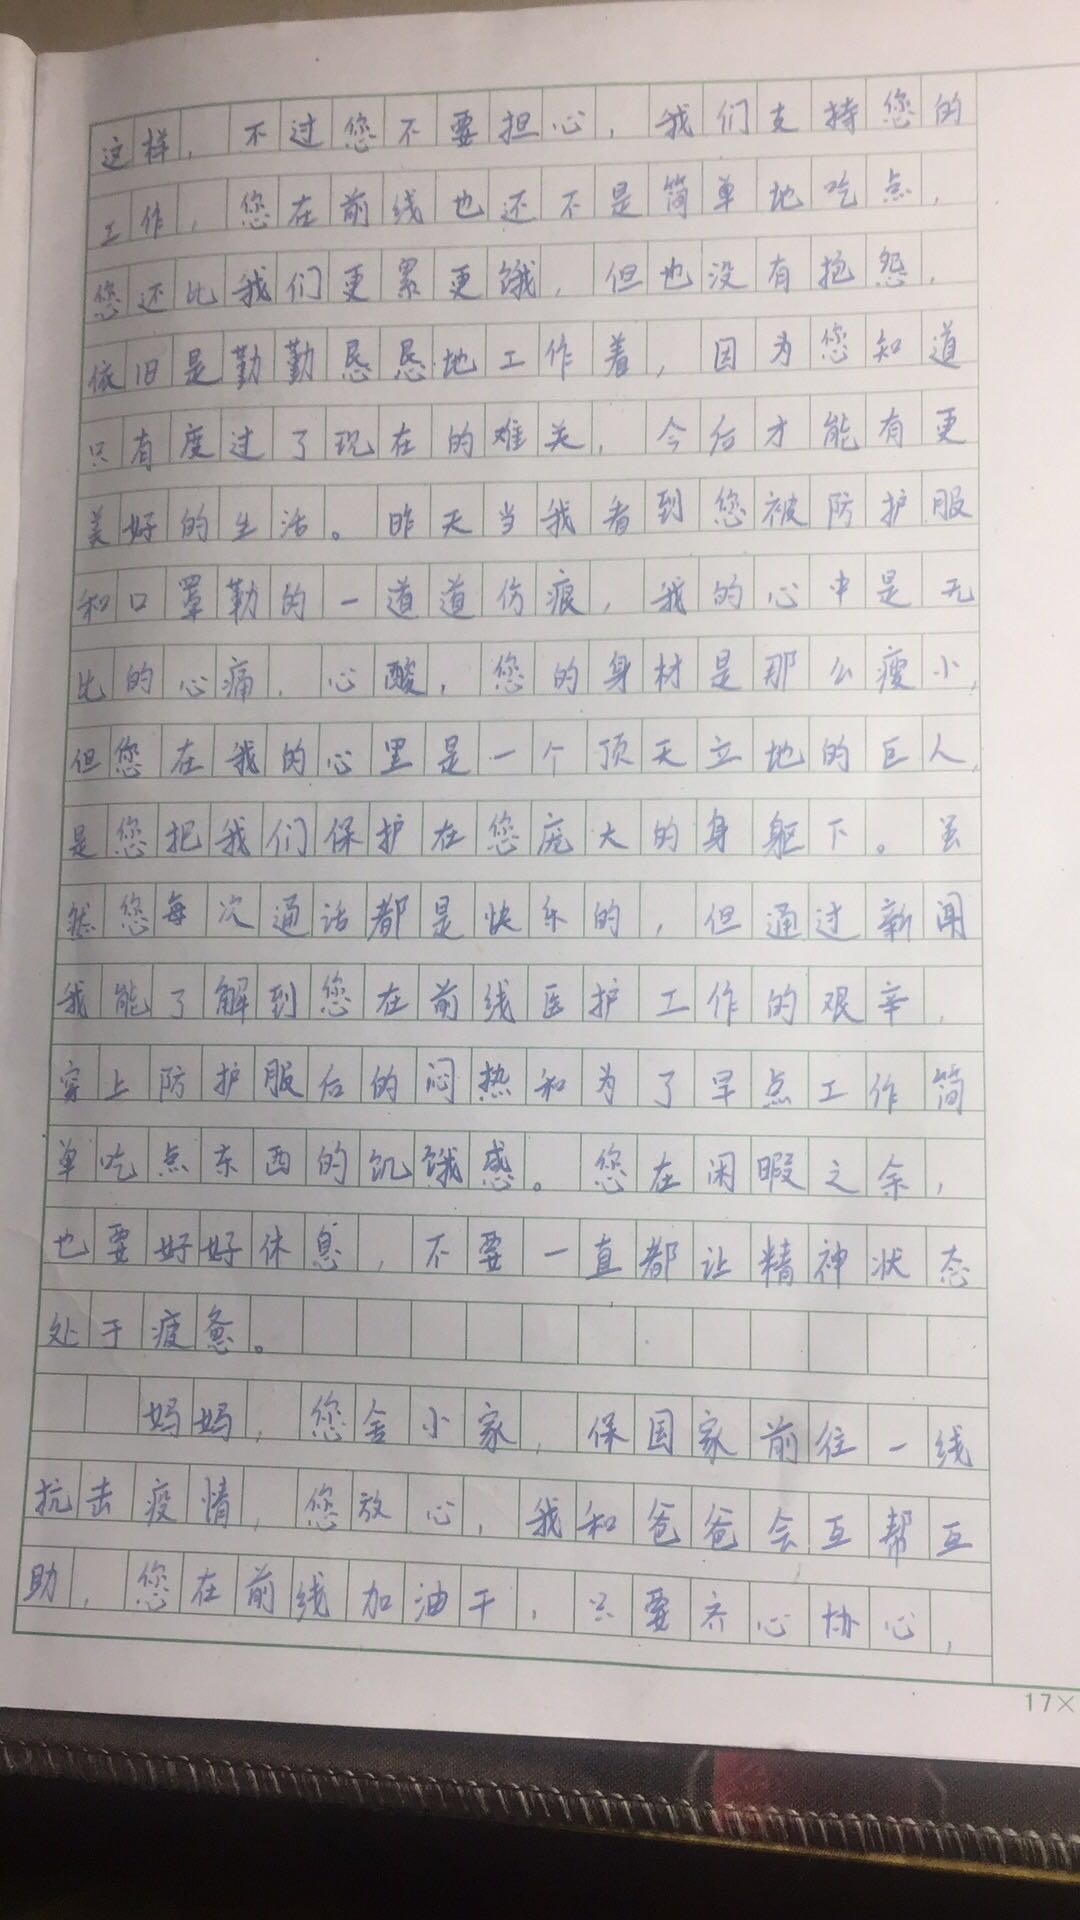 这样，不过您不要担心，我们支持您的
工作，您在前线也还不是简单地吃点，
您还比我们更累更饿，但也没有抱怨，
依旧是勤勤恳恳地工作着，因为您知道
只有度过了现在的难关，今后才能有更
美好的生活。昨天当我看到您被防护服
和口罩勒的一道道伤痕，我的心中是无
比的心痛、心酸，您的身材是那么瘦小，
但您在我的心里是一个顶天立地的巨人，
是您把我们保护在您庞大的身躯下。虽
然您每次通话都是快乐的，但通过新闻
我能了解到您在前线医护工作的艰辛，
穿上防护服后的闷热和为了早点工作简
单吃点东西的饥饿感。您在闲暇之余，
也要好好休息，不要一直都让精神状态
处于疲惫。
妈妈，您舍小家，保国家前往一线
抗击疫情，您放心，我和爸爸会互帮互
助，您在前线加油干，只要齐心协心，
17×